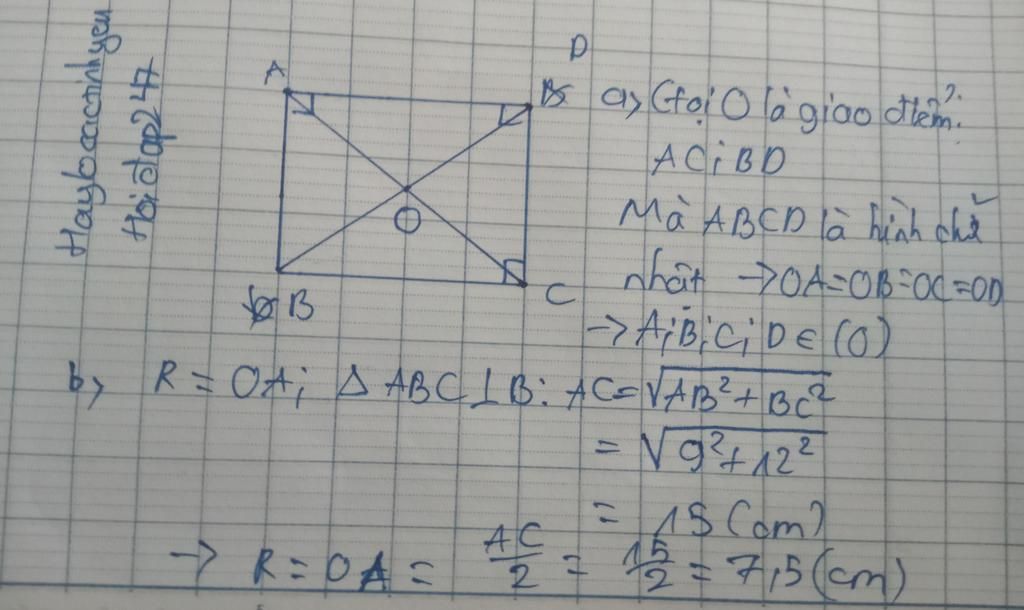 Hayboccotinhyeu
Hoidap247
A
D
B
C
O
a, Gọi O là giao điểm:
AC; BD
Mà ABCD là hình chữ
nhật → OA=OB=OC=OD
→ A;B;C;D ∈ (O)
b, R = OA; Δ ABC ⊥ B: AC = √AB² + BC²
= √9² + 12²
= 15 (cm)
→ R = OA = AC/2 = 15/2 = 7,5 (cm)